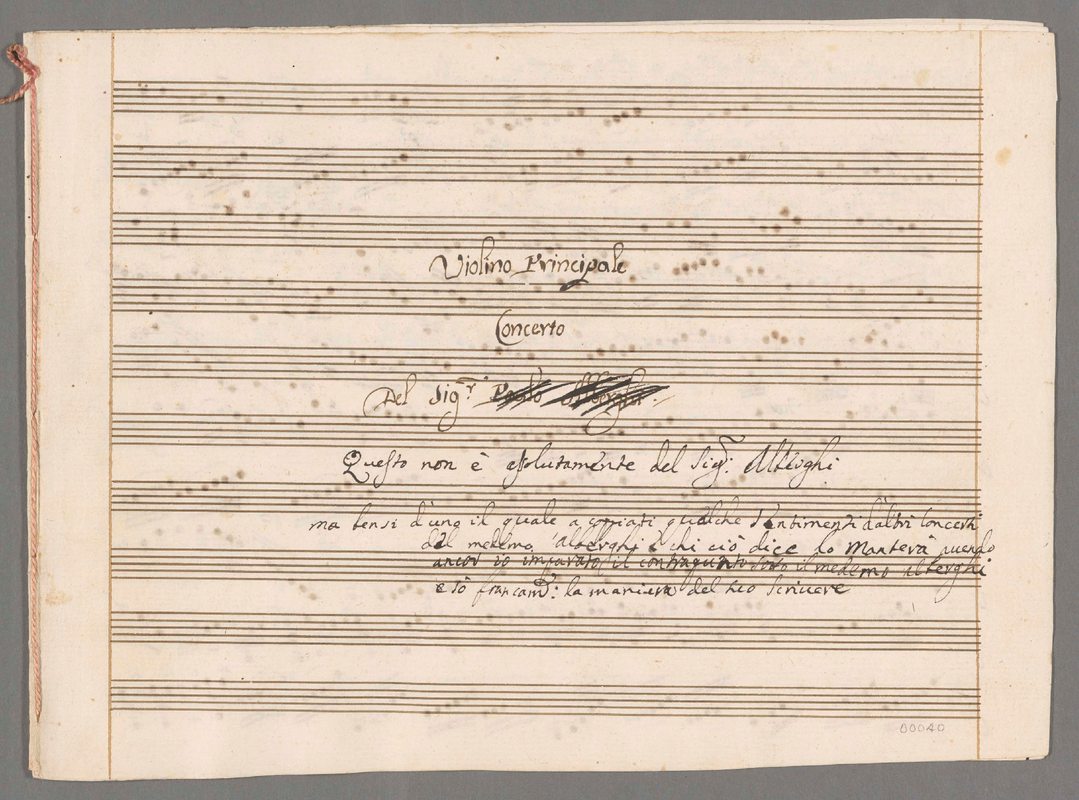 Violino Principale
Concerto
Del Sig.r Paolo Alberghi
Questo non è assolutamente del Sig.r Alberghi
ma bensi d'uno il quale a copiati qualche Sentimenti d'altri Concerti
del medemo Alberghi e chi ciò dice lo Manterà avendo
ancor io imparato il contrapunto sotto il medemo alberghi
e sò francam.e: la maniera del suo scrivere
00040